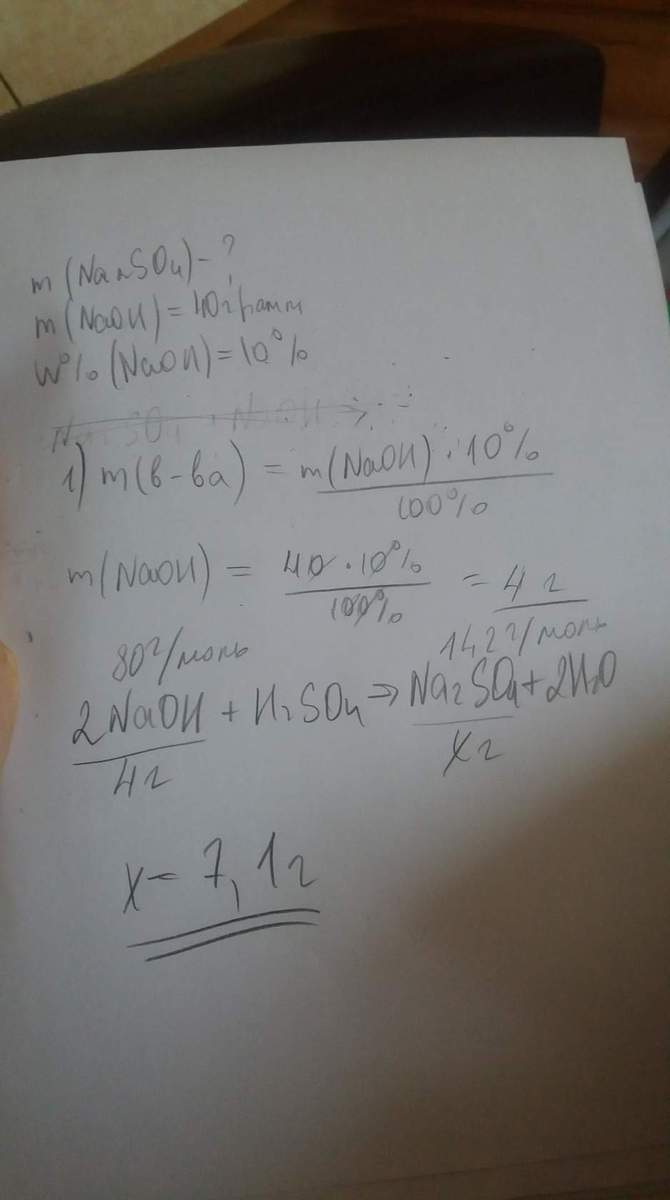 m (Na₂SO₄) - ?
m (NaOH) = 40 грамм
W% (NaOH) = 10%
Na₂SO₄ + NaOH →
1) m(в-ва) = m(NaOH) · 10% / 100%
m(NaOH) = 40 · 10% / 100% = 4 г
80г/моль 142г/моль
2NaOH + H₂SO₄ → Na₂SO₄ + 2H₂O
4г xг
x = 7,1г